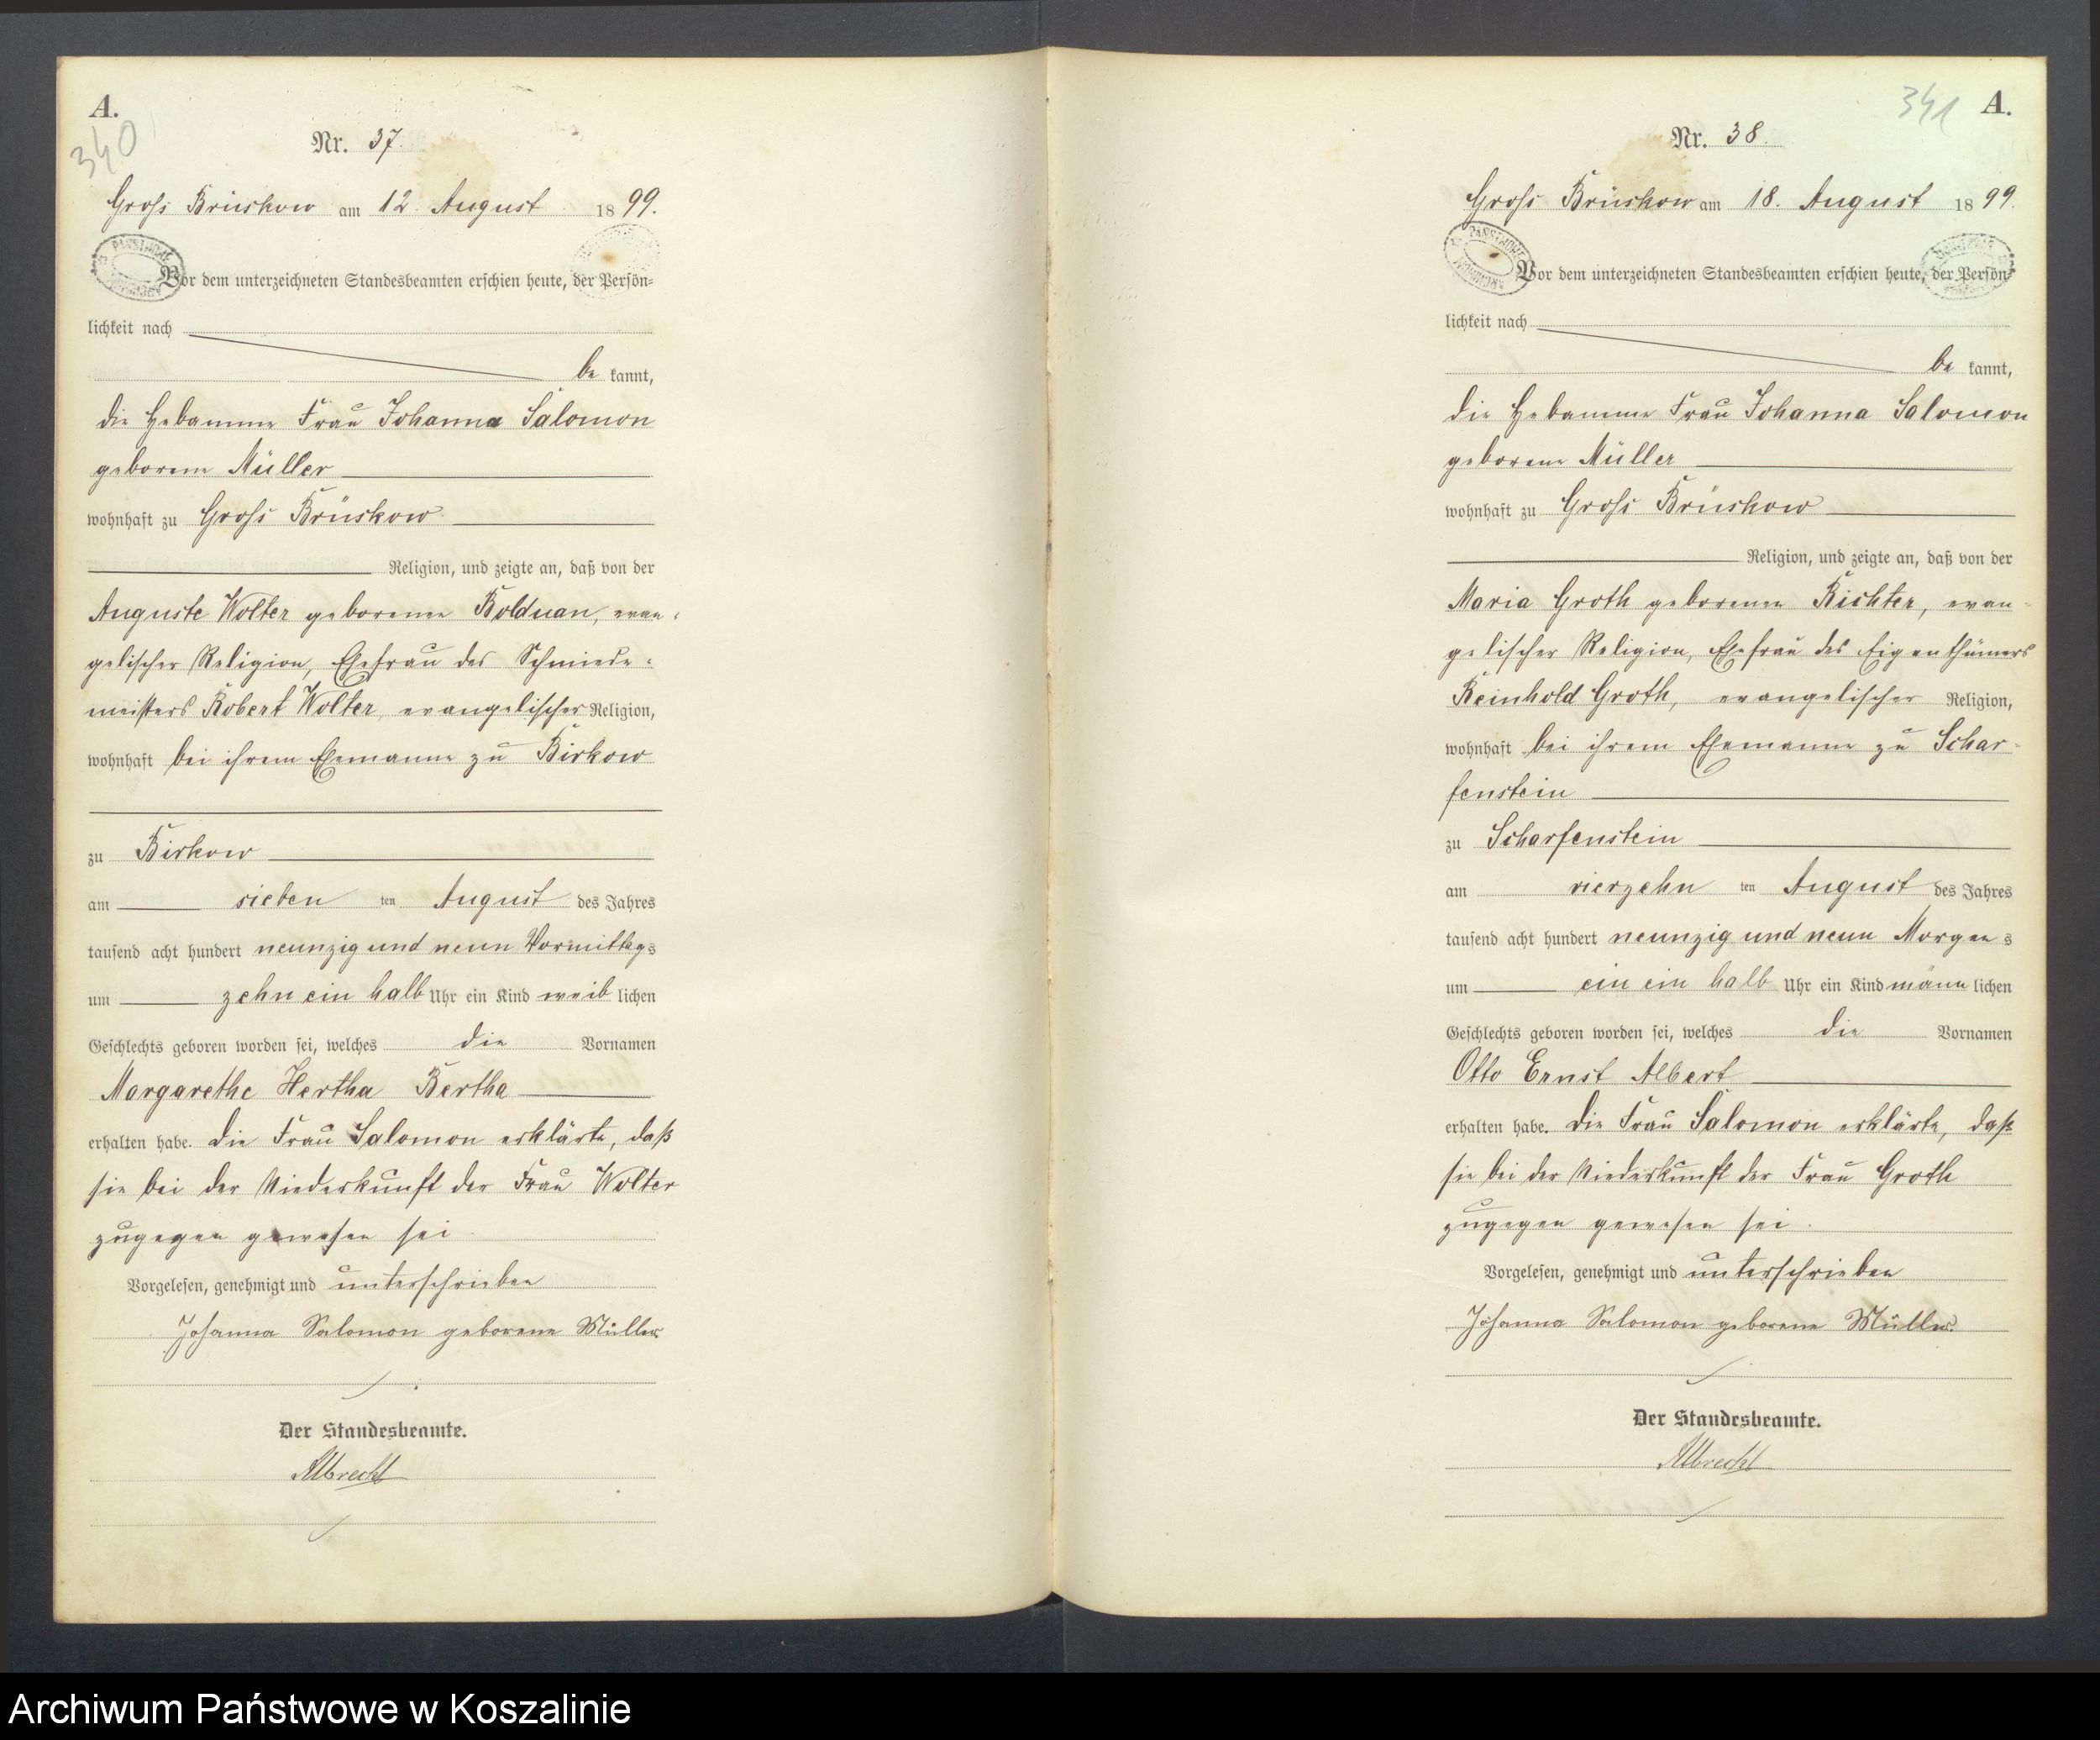 A.
340
Nr. 37.
Gross Brüskow am 12. August 1899.
Vor dem unterzeichneten Standesbeamten erschien heute, der Persön-
lichkeit nach
be kannt,
die Hebamme Frau Johanna Salomon
geborene Müller
wohnhaft zu Gross Brüskow
Religion, und zeigte an, daß von der
Auguste Wolter geborenen Bolduan, evan-
gelischer Religion, Ehefrau des Schmiede-
meisters Robert Wolter, evangelischer Religion,
wohnhaft bei ihrem Ehemanne zu Birkow
zu Birkow
am sieben ten August des Jahres
tausend acht hundert neunzig und neun Vormittags
um zehn ein halb Uhr ein Kind weib lichen
Geschlechts geboren worden sei, welches die Vornamen
Margarethe Hertha Bertha
erhalten habe. Die Frau Salomon erklärte, daß
sie bei der Niederkunft der Frau Wolter
zugegen gewesen sei.
Vorgelesen, genehmigt und unterschrieben
Johanna Salomon geborene Müller.
Der Standesbeamte.
Albrecht
341 A.
Nr. 38.
Gross Brüskow am 18. August 1899.
Vor dem unterzeichneten Standesbeamten erschien heute, der Persön-
lichkeit nach
be kannt,
die Hebamme Frau Johanna Salomon
geborene Müller
wohnhaft zu Gross Brüskow
Religion, und zeigte an, daß von der
Maria Groth geborenen Richter, evan-
gelischer Religion, Ehefrau des Eigenthümers
Reinhold Groth, evangelischer Religion,
wohnhaft bei ihrem Ehemanne zu Schar-
fenstein
zu Scharfenstein
am vierzehn ten August des Jahres
tausend acht hundert neunzig und neun Morgens
um ein ein halb Uhr ein Kind männ lichen
Geschlechts geboren worden sei, welches die Vornamen
Otto Ernst Albert
erhalten habe. Die Frau Salomon erklärte, daß
sie bei der Niederkunft der Frau Groth
zugegen gewesen sei.
Vorgelesen, genehmigt und unterschrieben
Johanna Salomon geborene Müller.
Der Standesbeamte.
Albrecht
Archiwum Państwowe w Koszalinie